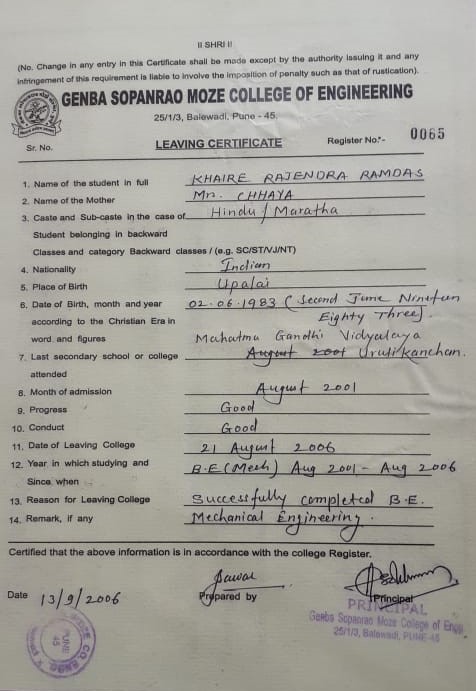 II SHRI II
(No. Change in any entry in this Certificate shall be made except by the authority issuing it and any
infringement of this requirement is liable to involve the imposition of penalty such as that of rustication).
GENBA SOPANRAO MOZE COLLEGE OF ENGINEERING
25/1/3, Balewadi, Pune - 45.
Sr. No. LEAVING CERTIFICATE Register No:- 0065
1. Name of the student in full KHAIRE RAJENDRA RAMDAS
2. Name of the Mother Mrs. CHHAYA
3. Caste and Sub-caste in the case of Hindu / Maratha
Student belonging in backward
Classes and category Backward classes / (e.g. SC/ST/VJ/NT)
4. Nationality Indian
5. Place of Birth Upalai
6. Date of Birth, month and year 02.06.1983 (Second June Nineteen
according to the Christian Era in Eighty Three).
word and figures Mahatma Gandhi Vidyalaya
7. Last secondary school or college August 2001 Urulikanchan.
attended
8. Month of admission August 2001
9. Progress Good
10. Conduct Good
11. Date of Leaving College 21 August 2006
12. Year in which studying and B.E (Mech) Aug 2001 - Aug 2006
Since when
13. Reason for Leaving College Successfully completed B.E.
14. Remark, if any Mechanical Engineering.
Certified that the above information is in accordance with the college Register.
Date 13/9/2006 Prepared by Principal
PRINCIPAL
Genba Sopanrao Moze College of Engg.
25/1/3, Balewadi, PUNE-45
PUNE
45